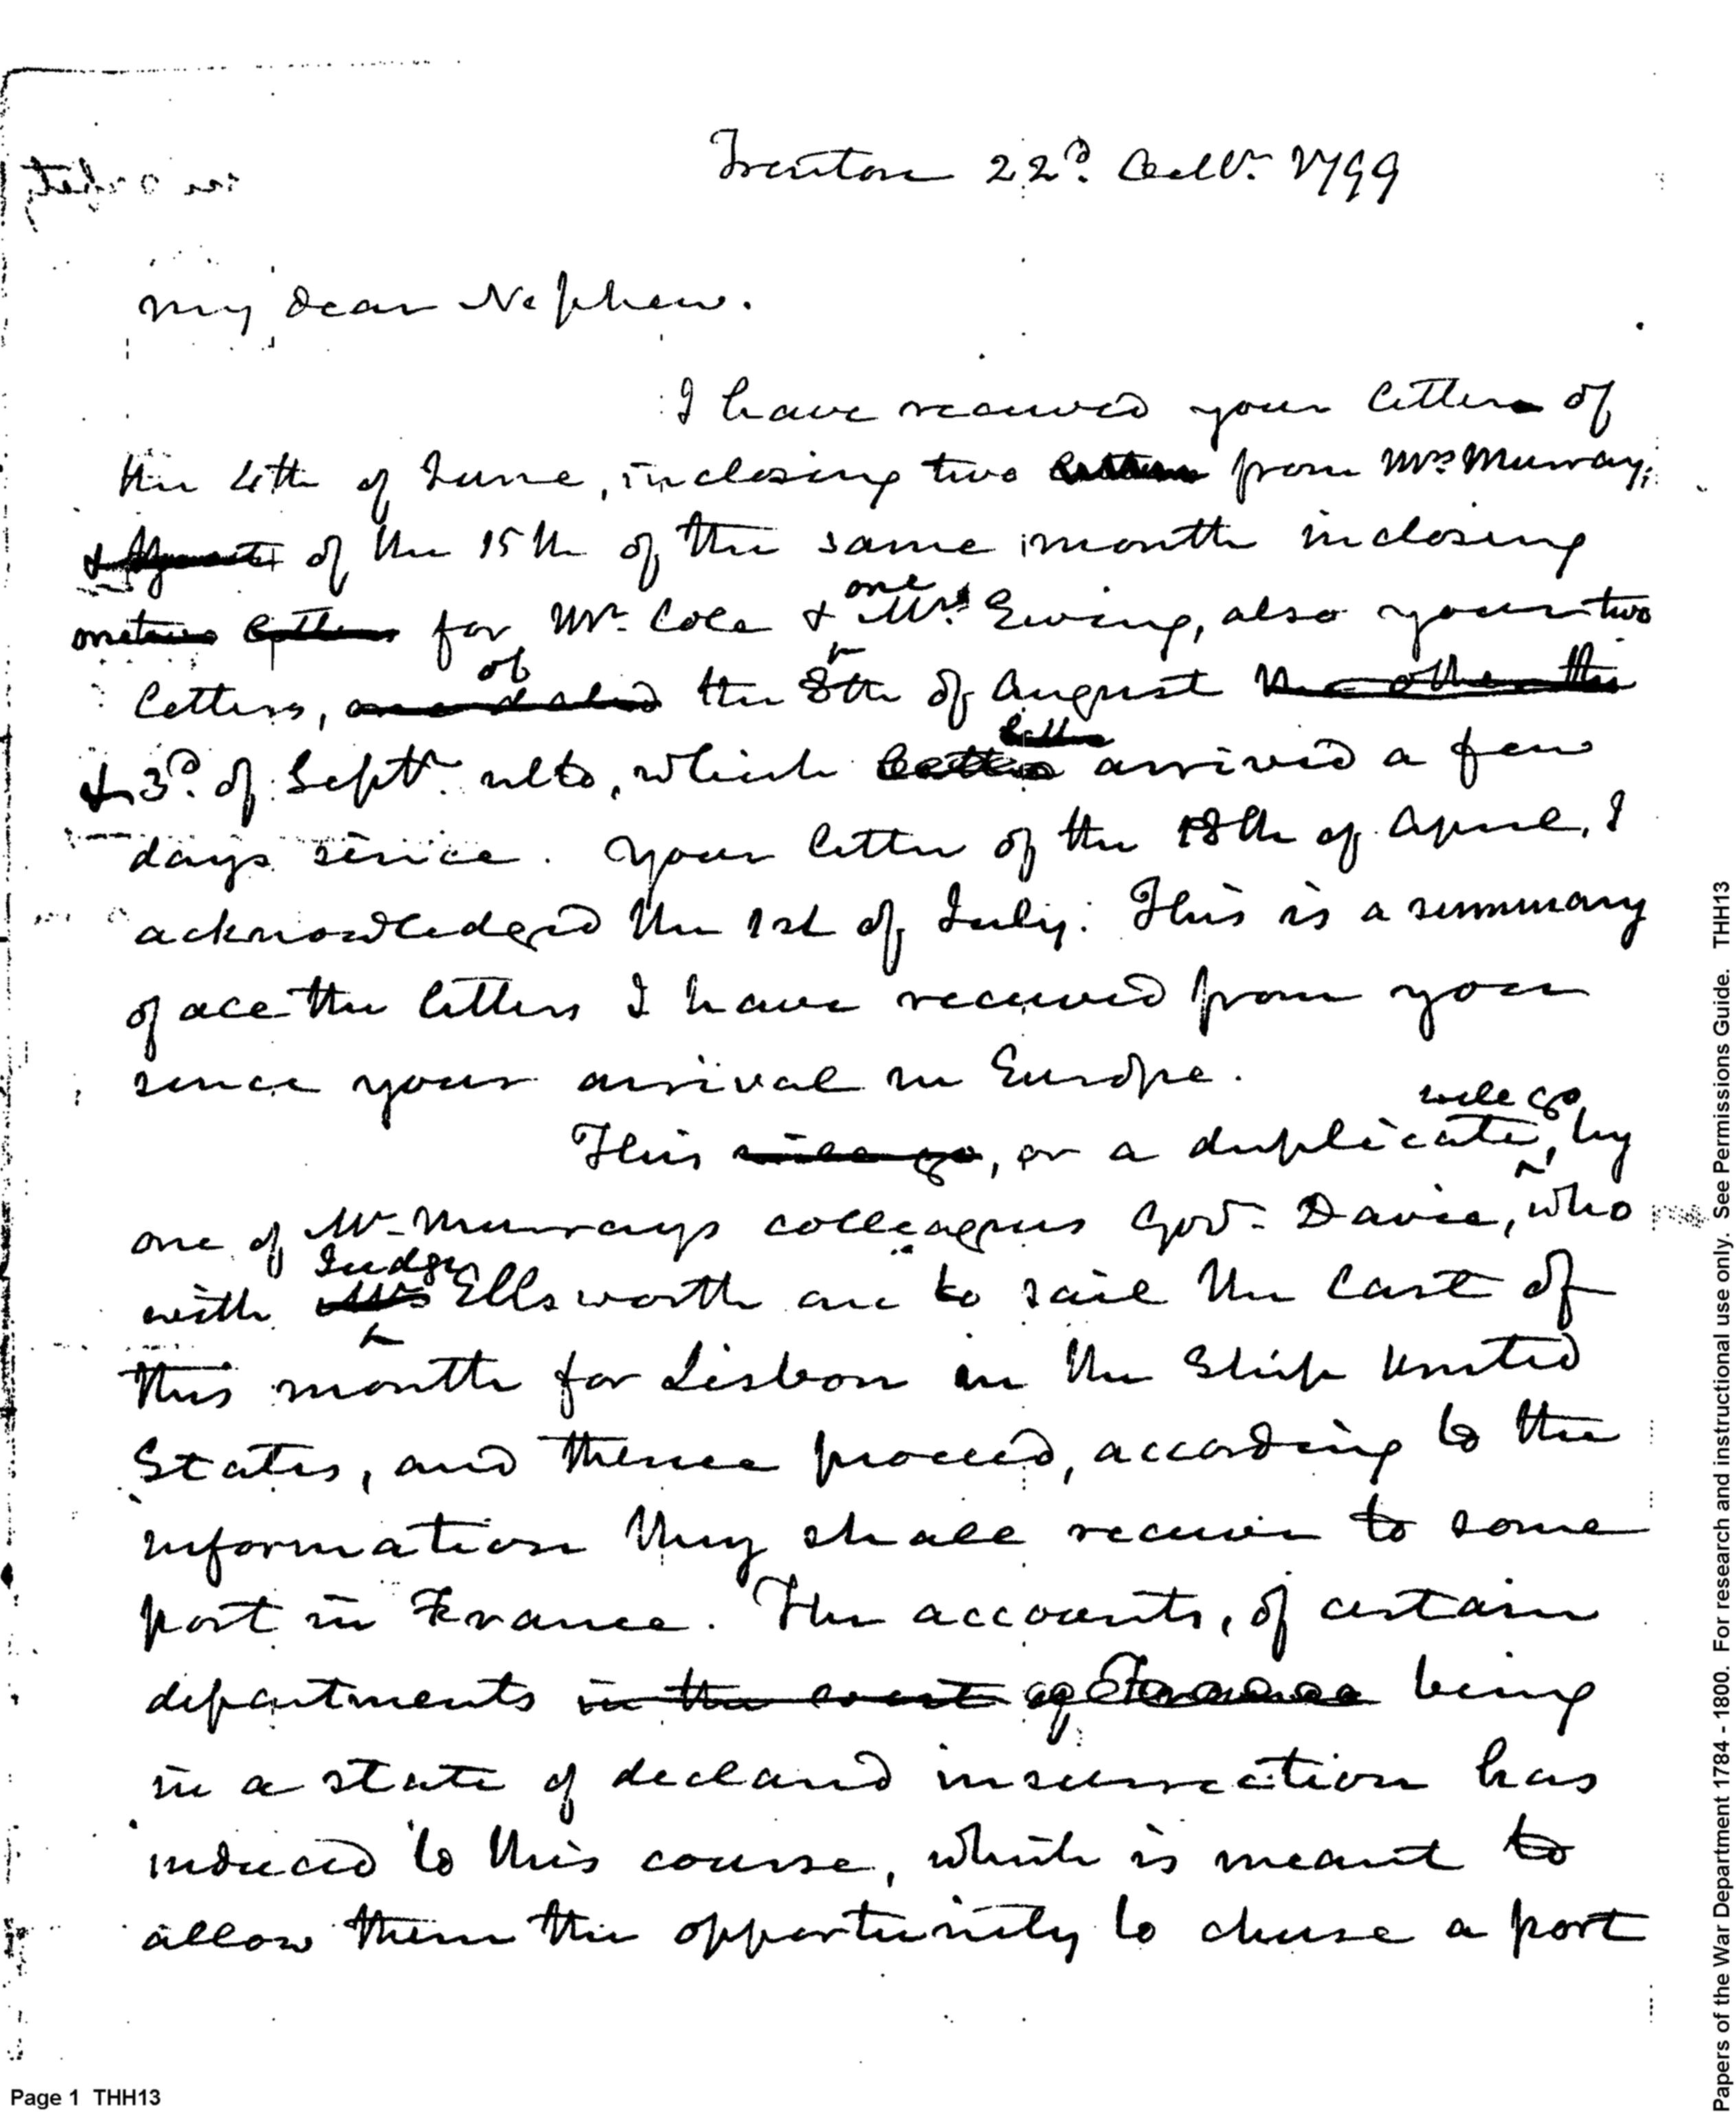 Trenton 22d. Octbr. 1799
My dear Nephew.
I have received your letter of
the 4th of June, inclosing two letters from Mrs Murray,
& of the 15th of the same month inclosing
one two letters for Mr. Cole & one Mrs. Ewing, also your two
letters, one dated of the 8th of August the other the
& 3d. of Septr. ulto, which letter arrived a few
days since. Your letter of the 18th of April, I
acknowledged the 1st of July. This is a summary
of all the letters I have received from you
since your arrival in Europe.
This will go, or a duplicate will go, by
one of Mr Murrays colleagues Govr. Davie, who
with Mr Judge Ellsworth are to sail the last of
this month for Lisbon in the Ship United
States, and thence proceed, according to the
information they shall receive to some
port in France. The accounts, of certain
departments in the west of France being
in a state of declared insurrection has
induced to this course, which is meant to
allow them the opportunity to chuse a port
Page 1 THH13
Papers of the War Department 1784 - 1800. For research and instructional use only. See Permissions Guide. THH13